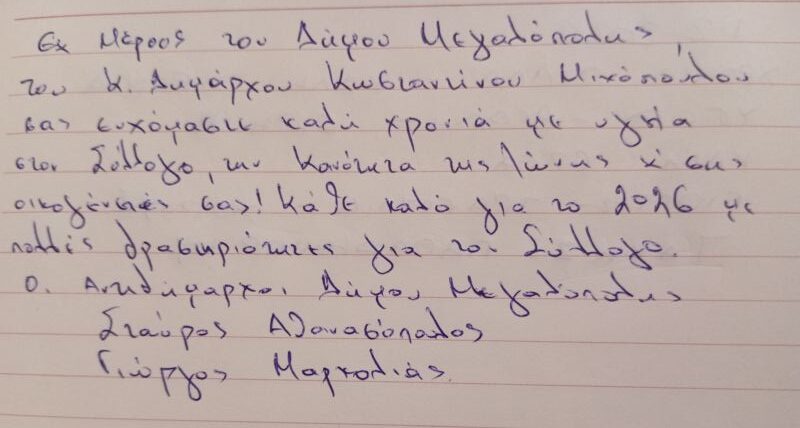 Εκ Μέρους του Δήμου Μεγαλόπολης,
του κ. Δημάρχου Κωσταντίνου Μιχόπουλου
σας ευχόμαστε καλή χρονιά με υγεία
στον Σύλλογο, την Κοινότητα της Λύκης κ' στις
οικογένειές σας! Κάθε καλό για το 2026 με
πολλές δραστηριότητες για το Σύλλογο.
Ο. Αντιδήμαρχοι Δήμου Μεγαλόπολης
Σταύρος Αθανασόπουλος
Γιώργος Μαρκολιάς.